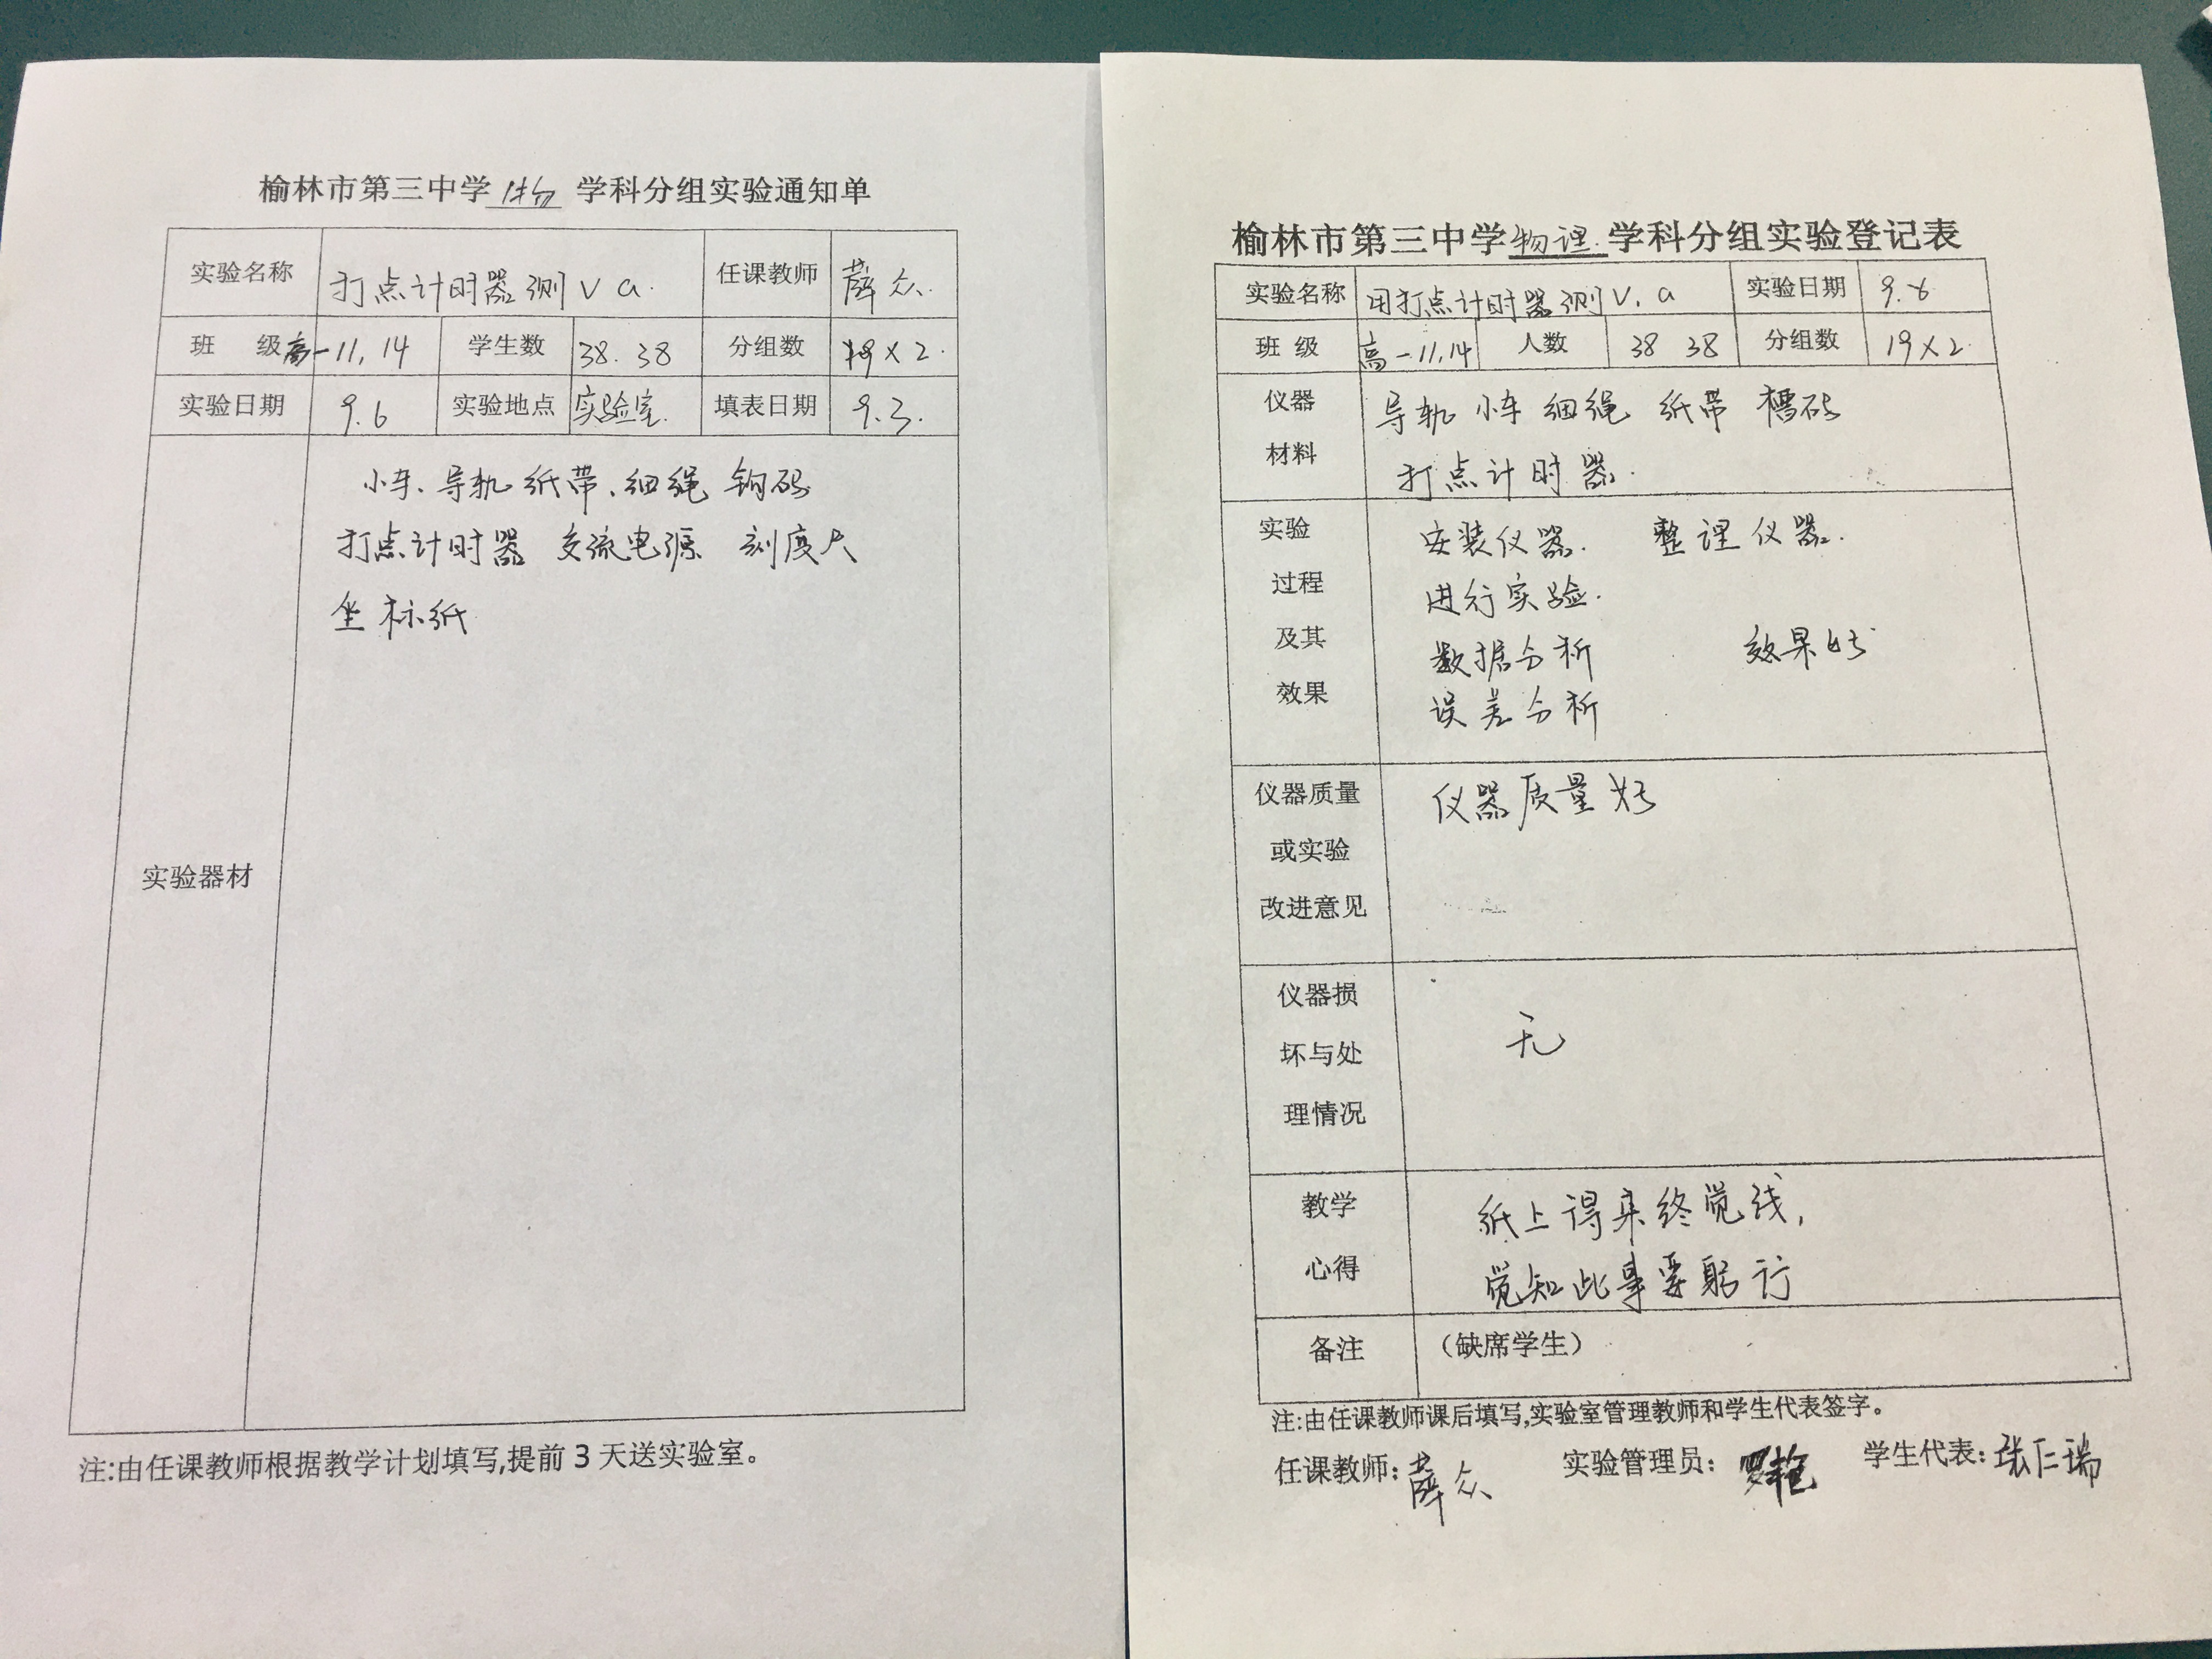 榆林市第三中学 学科分组实验通知单
实验名称 打点计时器测 V a. 任课教师 薛众.
班 级 高一11, 14 学生数 38. 38 分组数 19×2.
实验日期 9.6 实验地点 实验室. 填表日期 9.3.
实验器材
小车、导轨 纸带、细绳 钩码
打点计时器 交流电源 刻度尺
坐标纸
注:由任课教师根据教学计划填写,提前 3 天送实验室。
榆林市第三中学物理学科分组实验登记表
实验名称 用打点计时器测 V, a 实验日期 9.6
班 级 高一11,14 人数 38 38 分组数 19×2
仪器 导轨 小车 细绳 纸带 槽码
材料 打点计时器.
实验 安装仪器. 整理仪器.
过程 进行实验.
及其 数据分析 效果好
效果 误差分析
仪器质量 仪器质量好
或实验
改进意见
仪器损
坏与处 无
理情况
教学 纸上得来终觉浅,
心得 觉知此事要躬行
备注 （缺席学生）
注:由任课教师课后填写,实验室管理教师和学生代表签字。
任课教师: 薛众 实验管理员: 学生代表: 张仁瑞